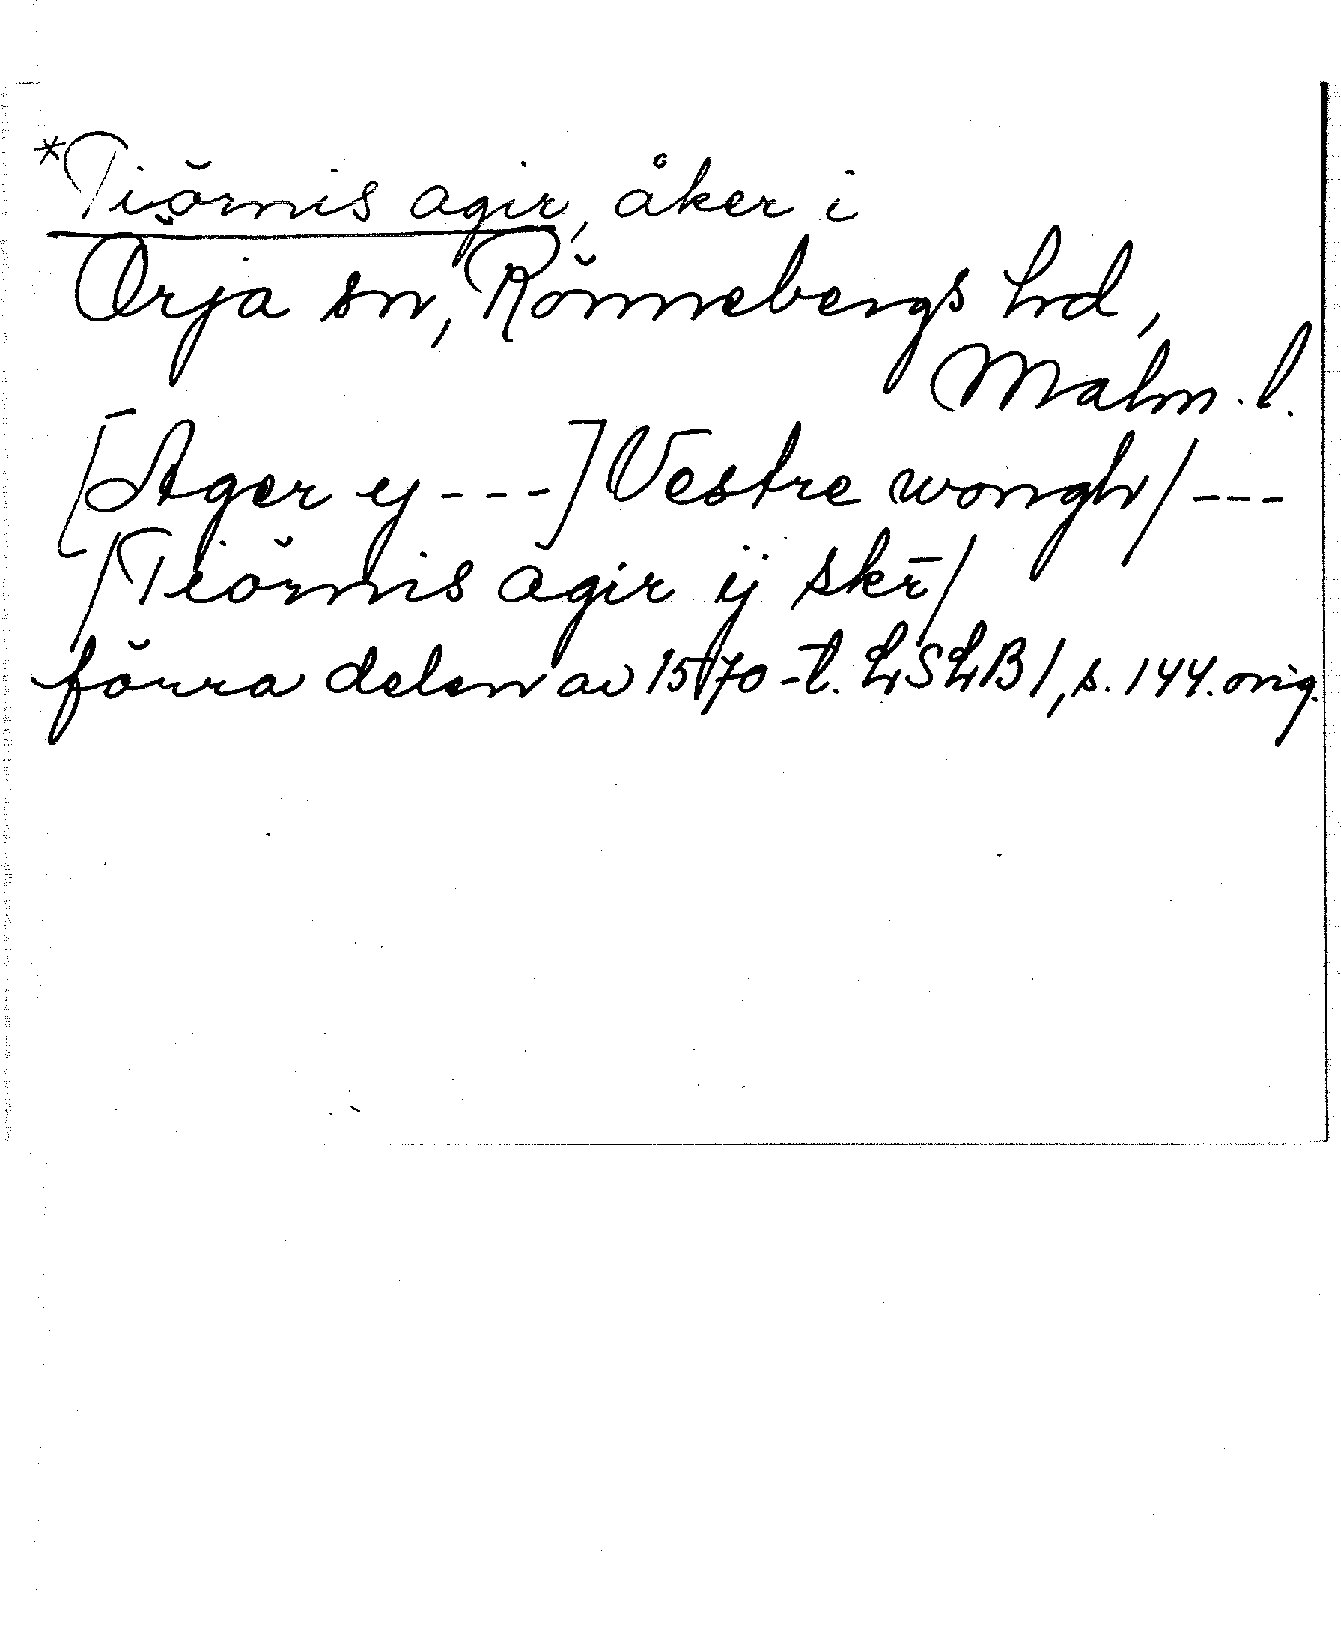 *Tiörnis agir, åker i
Örja sn, Rönnebergs hd,
Malm. l.
[Ager ij - - -] Vestre wongh/ - - -
/Tiörnis agir ij skr̄/
förra delen av 1570-t. LSLB 1, s. 144. orig.